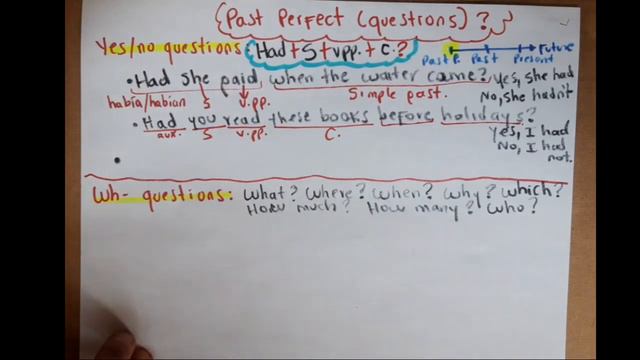 Past Perfect (questions)?
Yes/no questions: Had + S + v.pp. + C.?
Past P. Past Present Future
• Had she paid when the waiter came? Yes, she had
No, she hadn't
había/habían S v.pp. Simple past.
• Had you read these books before holidays?
aux. S v.pp. C.
Yes, I had
No, I had not.
•
Wh- questions: What? Where? When? Why? Which?
How much? How many? Who?